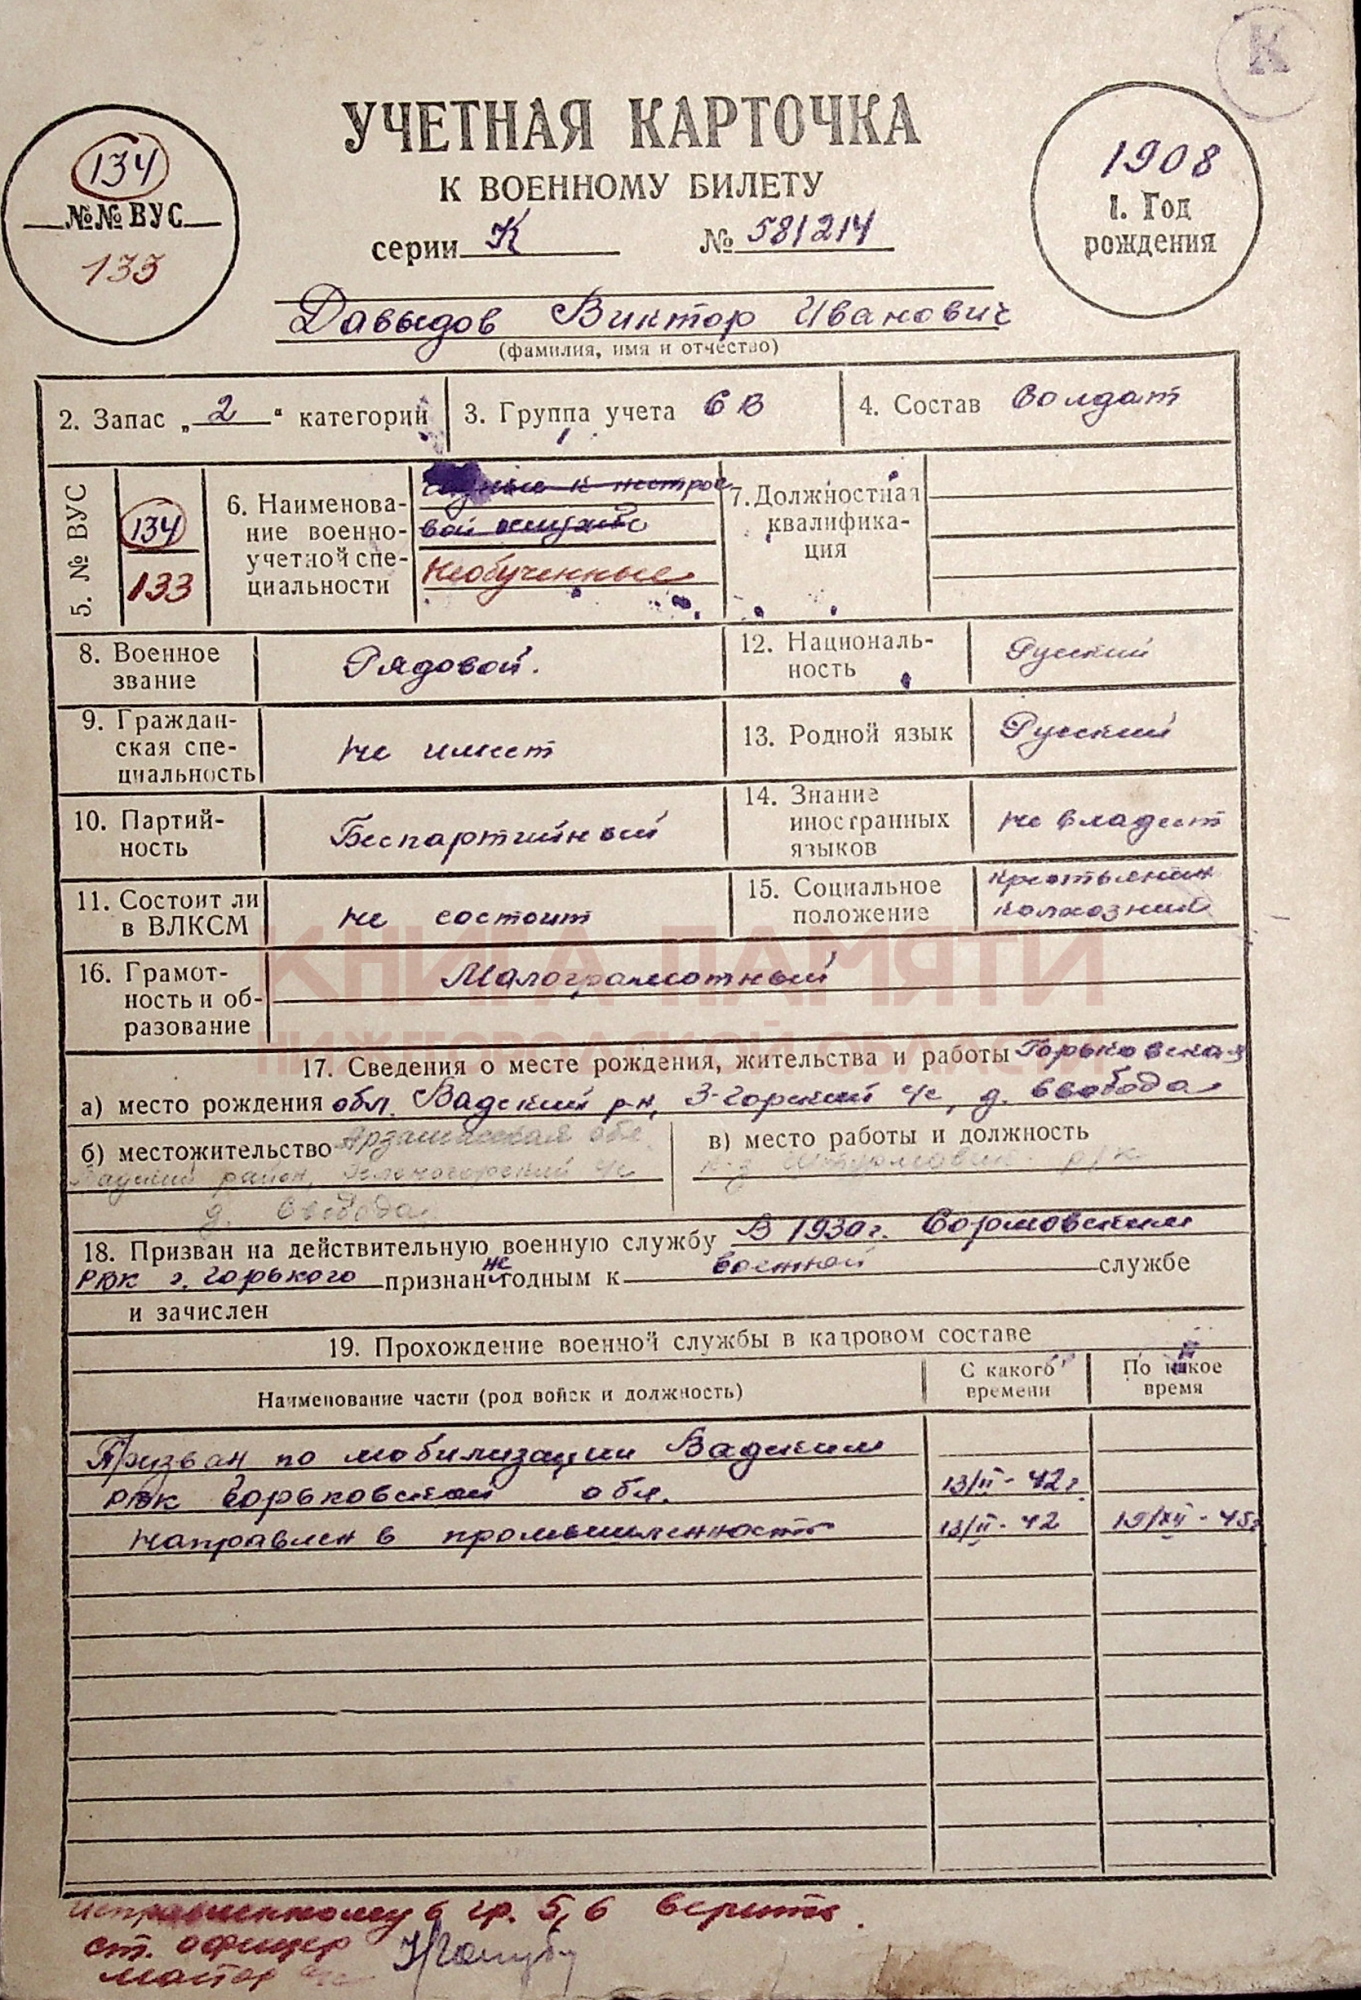 К
УЧЕТНАЯ КАРТОЧКА
К ВОЕННОМУ БИЛЕТУ
серии К № 581214
134
№№ ВУС
133
1908
1. Год
рождения
Давыдов Виктор Иванович
(фамилия, имя и отчество)
2. Запас „2“ категории
3. Группа учета СВ
4. Состав Солдат
5. № ВУС
134
133
6. Наименова-
ние военно-
учетной спе-
циальности
годные к нестрое
вой службе
Необученные
7. Должностная
квалифика-
ция
8. Военное
звание
Рядовой.
12. Националь-
ность
Русский
9. Граждан-
ская спе-
циальность
Не имеет
13. Родной язык
Русский
10. Партий-
ность
Беспартийный
14. Знание
иностранных
языков
Не владеет
11. Состоит ли
в ВЛКСМ
Не состоит
15. Социальное
положение
Крестьянин
колхозник
КНИГА ПАМЯТИ
НИЖЕГОРОДСКОЙ ОБЛАСТИ
16. Грамот-
ность и об-
разование
Малограмотный
17. Сведения о месте рождения, жительства и работы Горьковская
а) место рождения обл. Вадский р-н, З-Горский с/с, д. Свобода
б) местожительство Арзамасская обл.
Вадский район, Зеленогорский с/с
д. Свобода
в) место работы и должность
к-з Штурмовик р/к
18. Призван на действительную военную службу В 1930г. Сормовским
РВК г. Горького признан не годным к военной службе
и зачислен
19. Прохождение военной службы в кадровом составе
Наименование части (род войск и должность)
С какого
времени
По какое
время
Призван по мобилизации Вадским
РВК Горьковской обл. 13/II-42г.
Направлен в промышленность 13/II-42 19/XII-45г
Исправленному в гр. 5, 6 верить.
ст. офицер